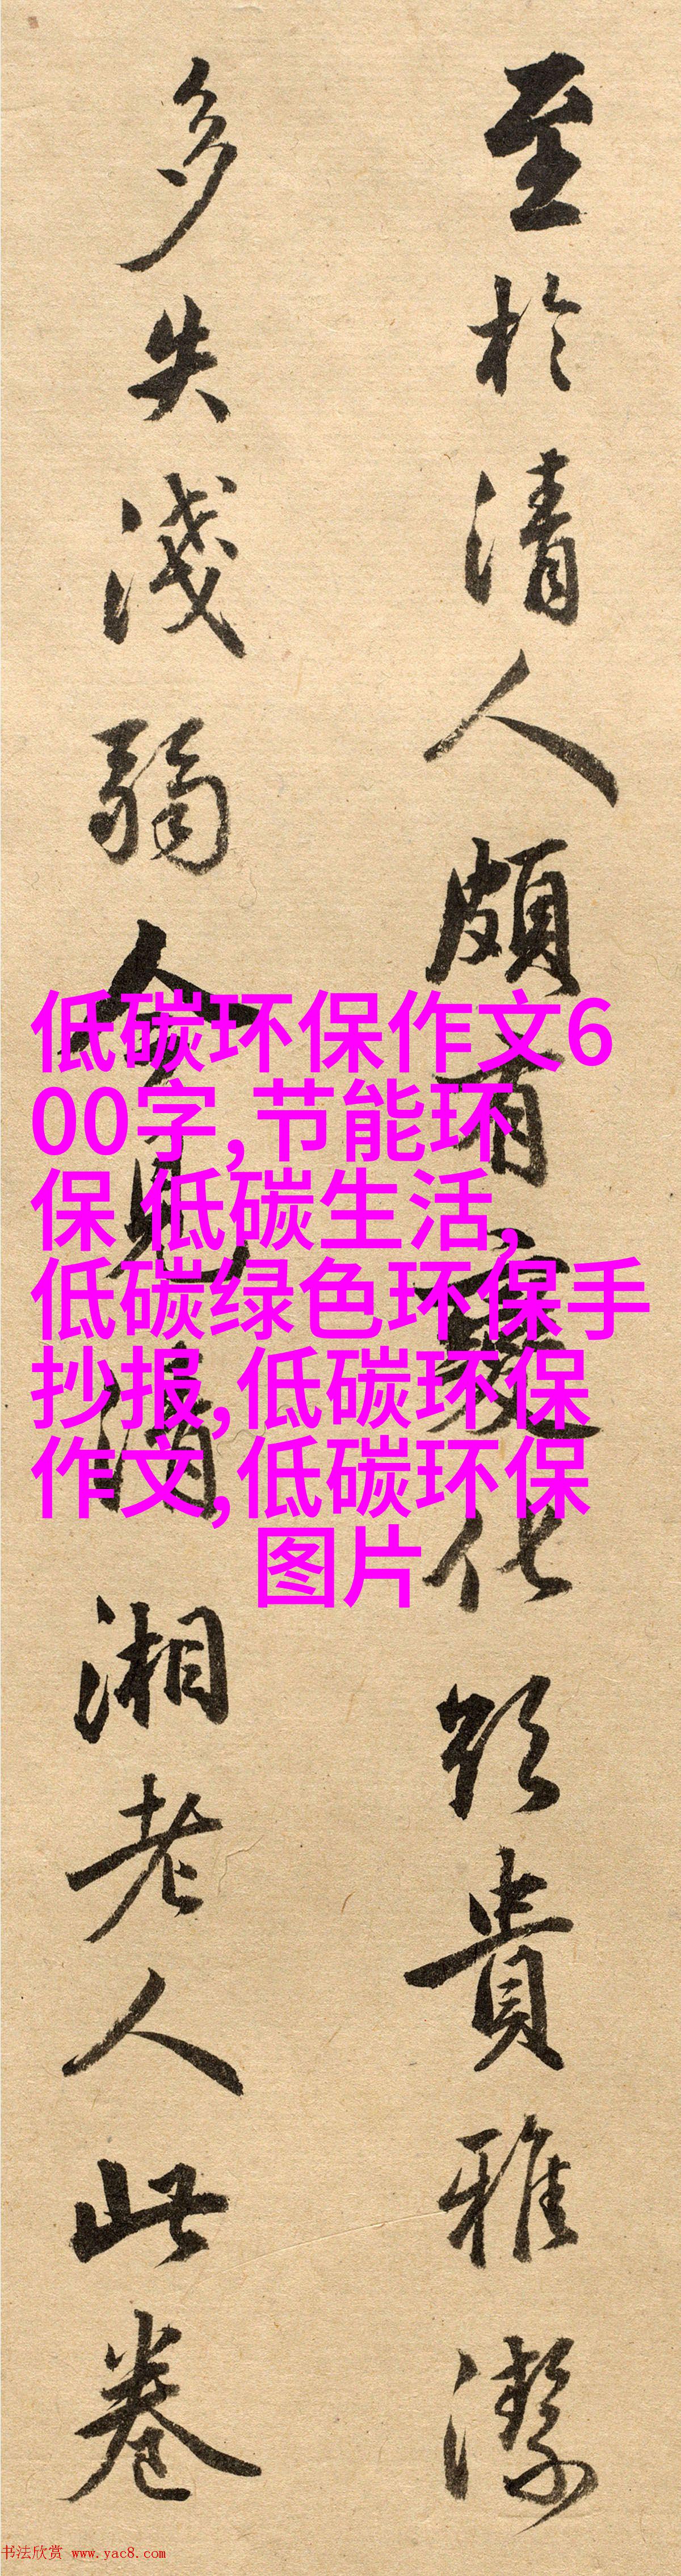 至於清人頗有變化頗貴雅潔
多失淺弱今見清湘老人此卷
低碳环保作文6
00字,节能环
保 低碳生活,
低碳绿色环保手
抄报,低碳环保
作文,低碳环保
图片
书法欣赏 www.yac8.com